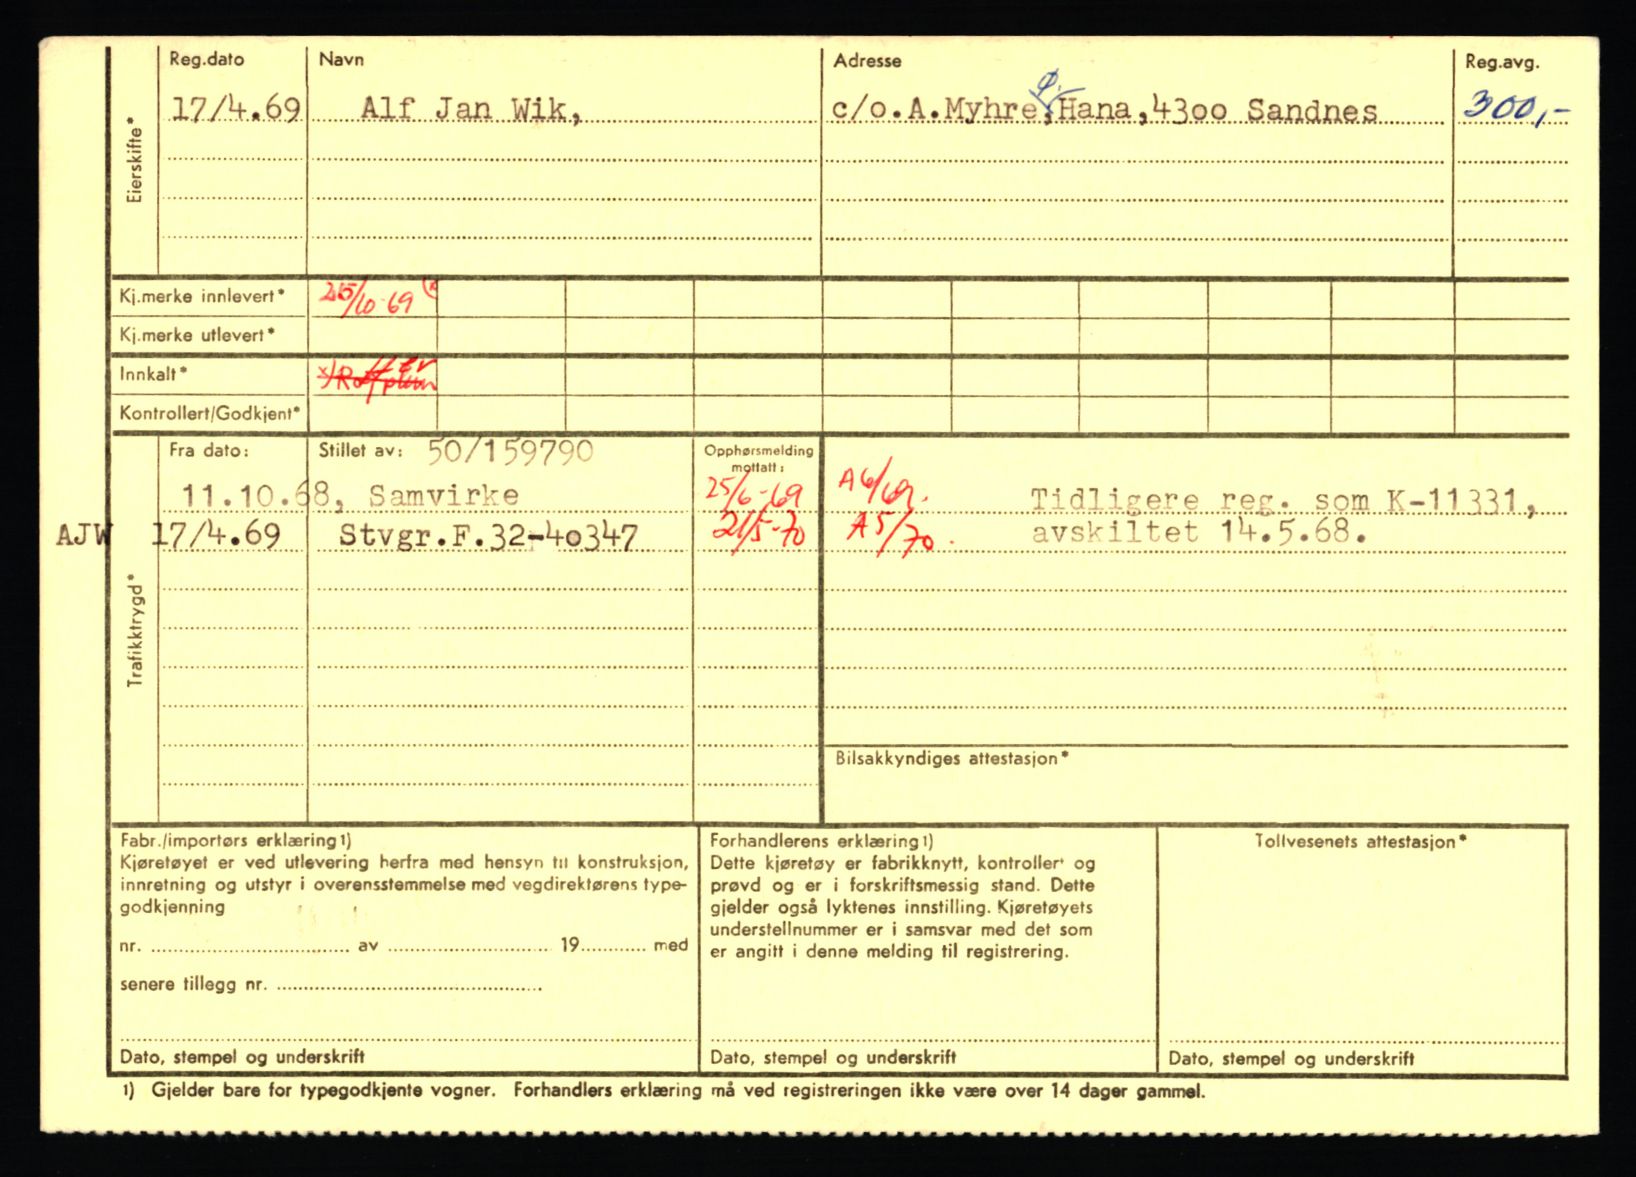 Reg.dato Navn Adresse Reg.avg.
17/4.69 Alf Jan Wik, c/o.A.Myhre, Ø. Hana,4300 Sandnes 300,-
Eierskifte*
Kj.merke innlevert* 25/10-69
Kj.merke utlevert*
Innkalt*
Kontrollert/Godkjent*
Fra dato: Stillet av: 50/159790 Opphørsmelding
mottatt:
11.10.68, Samvirke 25/6-69 A6/69. Tidligere reg. som K-11331,
AJW 17/4.69 Stvgr.F.32-40347 21/5-70 A5/70. avskiltet 14.5.68.
Trafikktrygd*
Bilsakkyndiges attestasjon*
Fabr./importørs erklæring1)
Kjøretøyet er ved utlevering herfra med hensyn til konstruksjon,
innretning og utstyr i overensstemmelse med vegdirektørens type-
godkjenning
nr. av 19 med
senere tillegg nr.
Dato, stempel og underskrift
Forhandlerens erklæring1)
Dette kjøretøy er fabrikknytt, kontrollert og
prøvd og er i forskriftsmessig stand. Dette
gjelder også lyktenes innstilling. Kjøretøyets
understellnummer er i samsvar med det som
er angitt i denne melding til registrering.
Dato, stempel og underskrift
Tollvesenets attestasjon*
Dato, stempel og underskrift
1) Gjelder bare for typegodkjente vogner. Forhandlers erklæring må ved registreringen ikke være over 14 dager gammel.